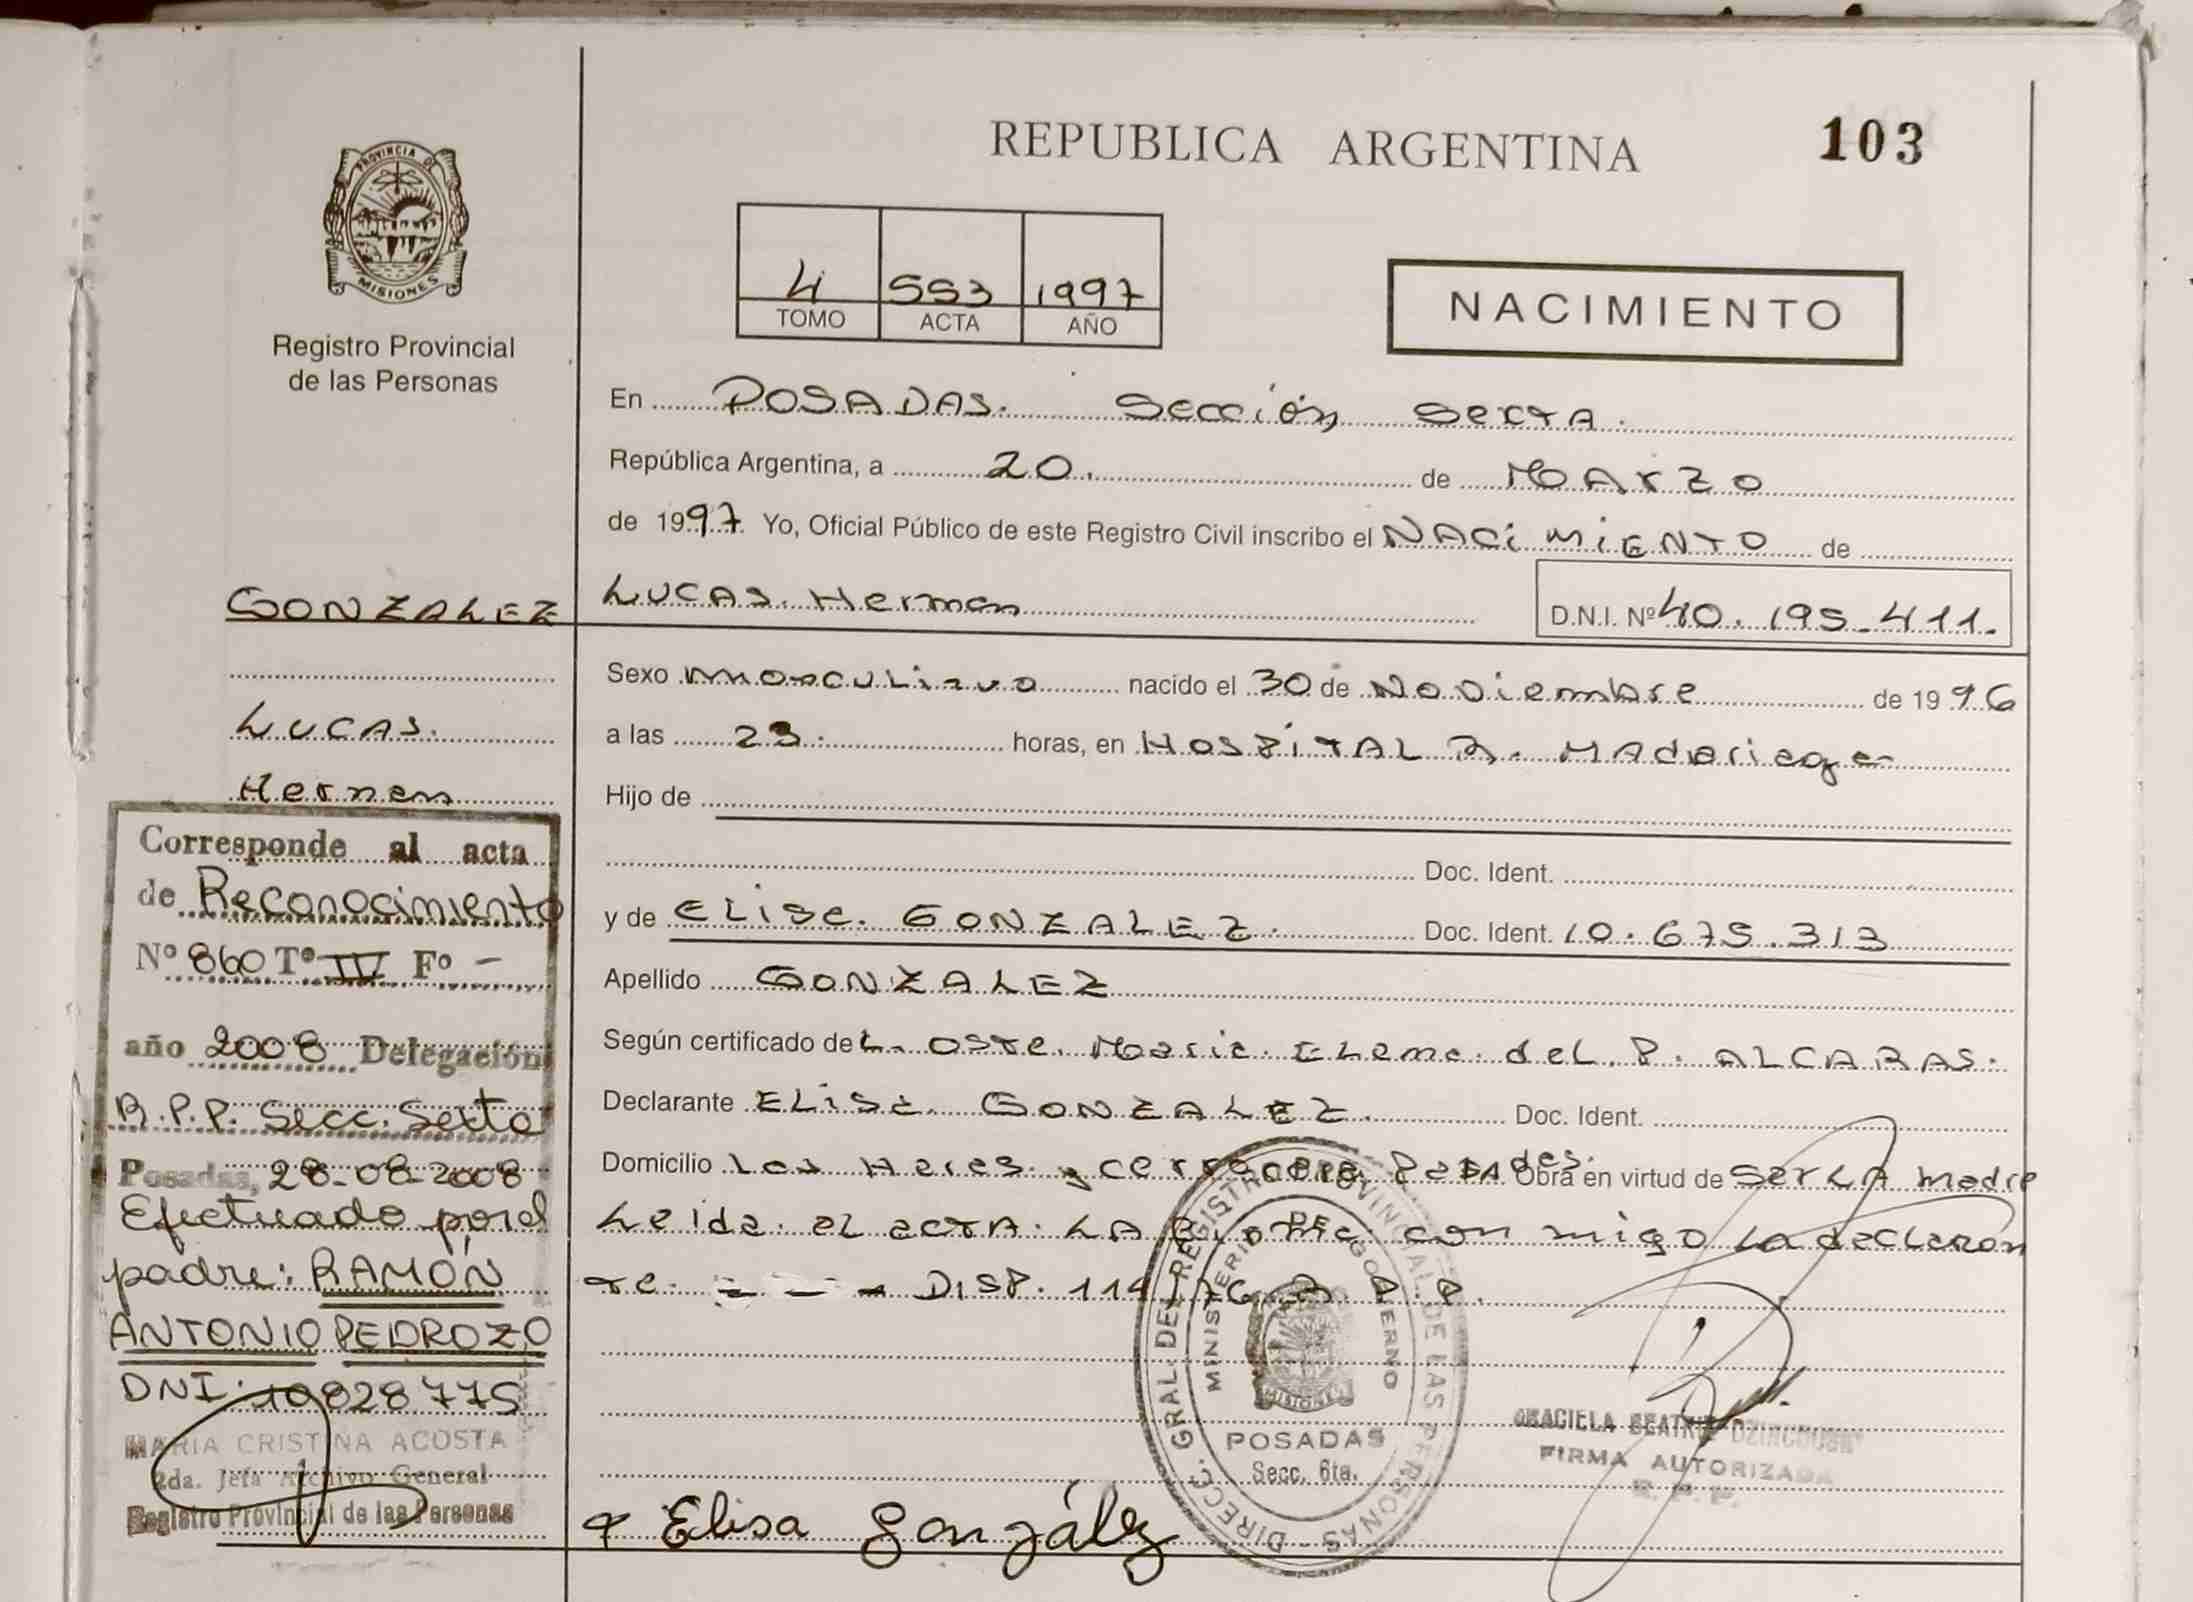 REPUBLICA ARGENTINA
103
PROVINCIA DE
MISIONES
Registro Provincial
de las Personas
4 553 1997
TOMO ACTA AÑO
NACIMIENTO
En POSADAS. Sección Sexta.
República Argentina, a 20. de Marzo
de 1997. Yo, Oficial Público de este Registro Civil inscribo el NACiMiENTO de
LUCAS Hernan D.N.I. Nº 40.195.411.
GONZALEZ
LUCAS.
Hernan
Sexo masculino nacido el 30 de Noviembre de 1996
a las 23. horas, en HOSPiTAL R. Madariaga
Hijo de
Doc. Ident.
y de Elisa GONZALEZ. Doc. Ident. 10.675.313
Apellido GONZALEZ
Según certificado de L. Obste. Maria Elena del P. ALCARAS.
Declarante ELisa GONZALEZ. Doc. Ident.
Domicilio Los Heres y Posadas. Obra en virtud de Ser LA madre
Leida el acta LA con migo La declaran
te. = - - DISP. 114/76 R.P.P.
Corresponde al acta
de Reconocimiento
Nº 860 Tº IV Fº -
año 2008 Delegación
R.P.P. Secc. Sexta
Posadas, 28-08-2008
Efectuado por el
padre: RAMÓN
ANTONIO PEDROZO
DNI: 10828775
MARIA CRISTINA ACOSTA
2da. Jefa Archivo General
Registro Provincial de las Personas
DIRECC. GRAL DEL REGISTRO PROVINCIAL DE LAS PERSONAS
MINISTERIO DE GOBIERNO
MISIONES
POSADAS
Secc. 6ta.
GRACIELA BEATRIZ
FIRMA AUTORIZADA
R. P. P.
Elisa González